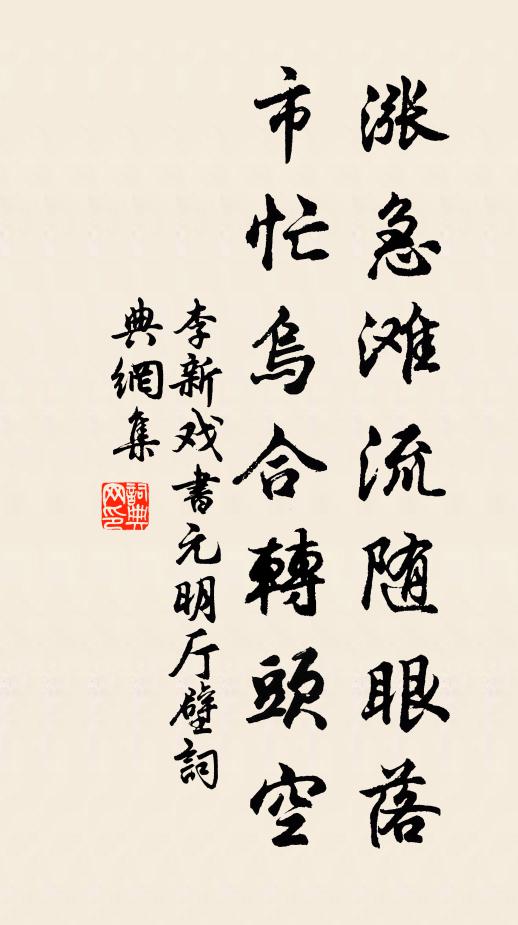 涨急滩流随眼落
市忙烏合轉頭空
李新戏書元明厅壁詞
典網集
詞典网印